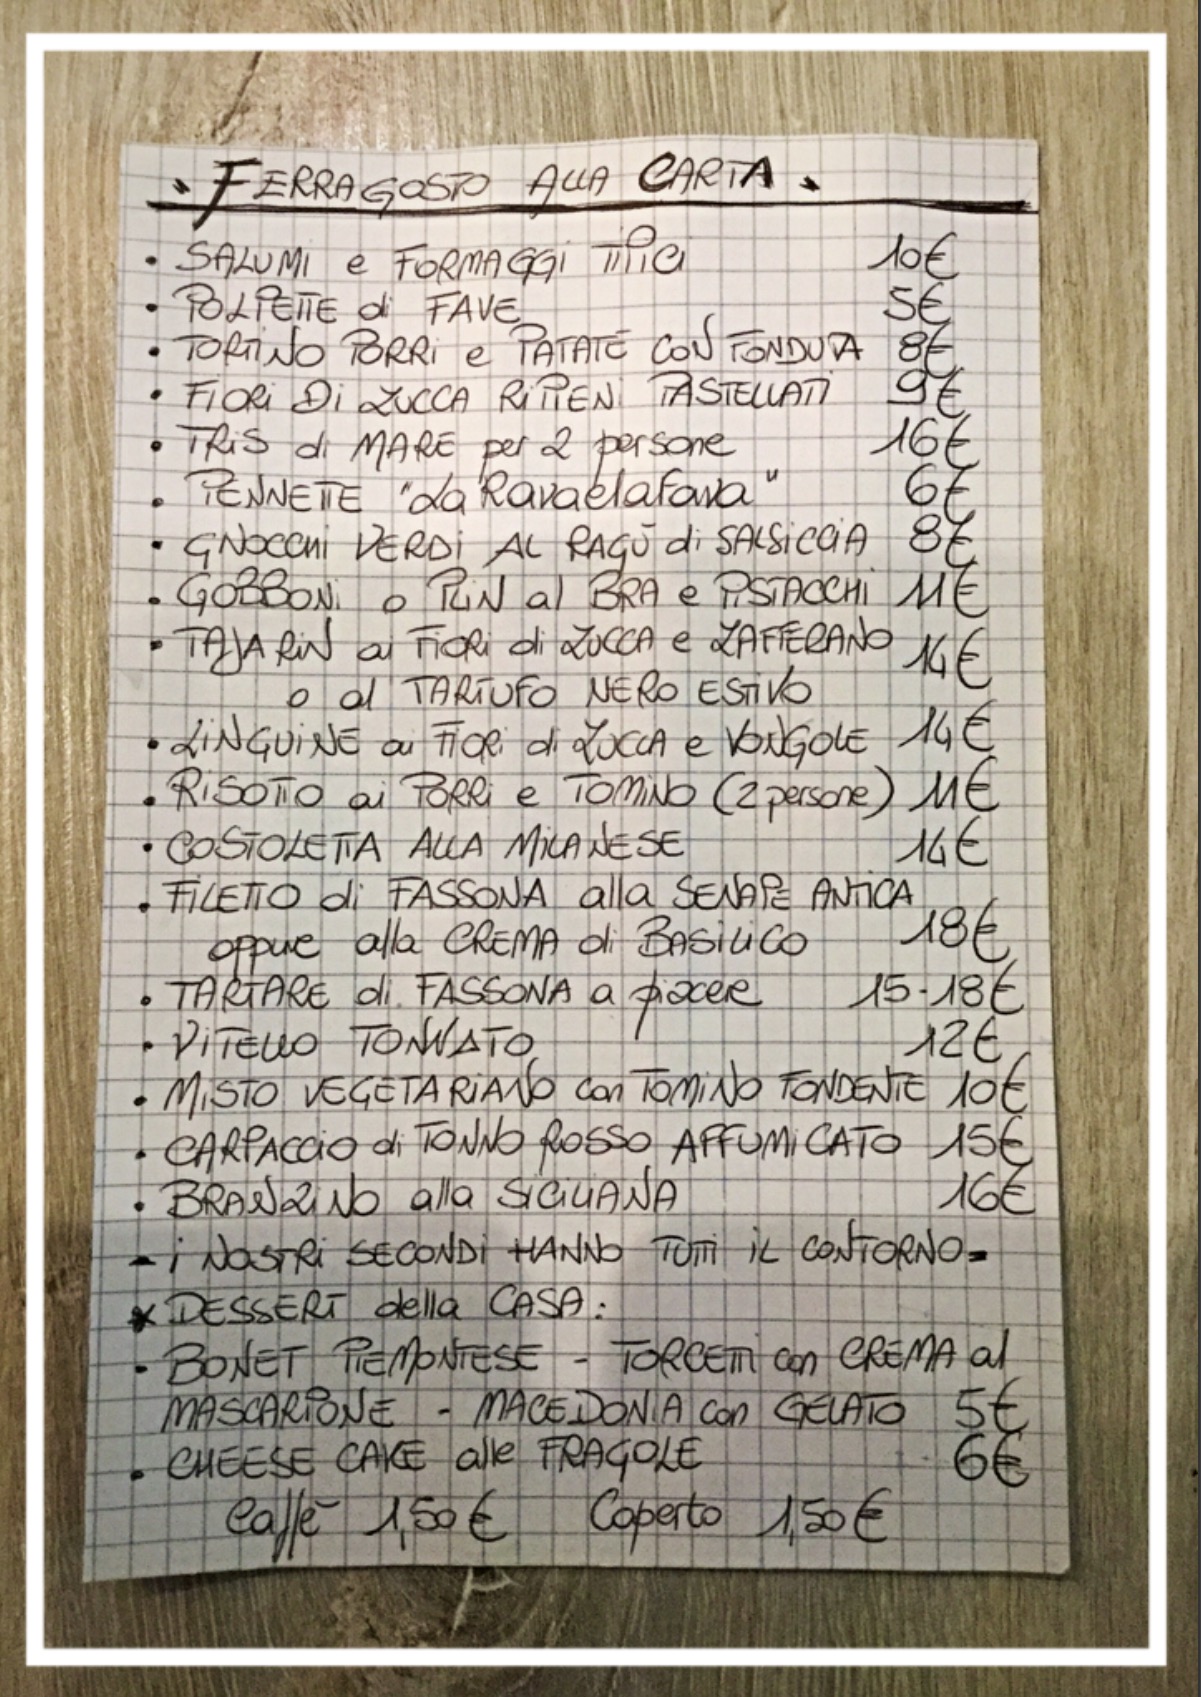 . FERRAGOSTO ALLA CARTA .
• SALUMI e FORMAGGI TIPICI 10€
• POLPETTE di FAVE 5€
• TORTINO PORRI e PATATE CON FONDUTA 8€
• FIORI Di ZUCCA RiPIENI PASTELLATI 9€
• TRIS di MARE per 2 persone 16€
• PENNETTE "La Ravaelafava" 6€
• GNOCCHI VERDI AL RAGÙ di SALSICCIA 8€
• GOBBONi o PLIN al BRA e PISTACCHI 11€
• TAJARIN ai FIORI di ZUCCA e ZAFFERANO 14€
o al TARTUFO NERO ESTIVO
• LINGUINE ai FIORI di ZUCCA e VONGOLE 14€
• RISOTTO ai PORRI e TOMINO (2 persone) 11€
• COSTOLETTA ALLA MILANESE 14€
• FILETTO di FASSONA alla SENAPE ANTICA
oppure alla CREMA di BASILICO 18€
• TARTARE di FASSONA a piacere 15-18€
• VITELLO TONNATO 12€
• MISTO VEGETARIANO con TOMINO FONDENTE 10€
• CARPACCIO di TONNO ROSSO AFFUMICATO 15€
• BRANZINO alla SICILIANA 16€
- i NOSTRI SECONDI HANNO TUTTI IL CONTORNO -
* DESSERT della CASA:
• BONET PIEMONTESE - TORCETTI con CREMA al
MASCARPONE - MACEDONIA con GELATO 5€
• CHEESE CAKE alle FRAGOLE 6€
Caffè 1,50€ Coperto 1,50€